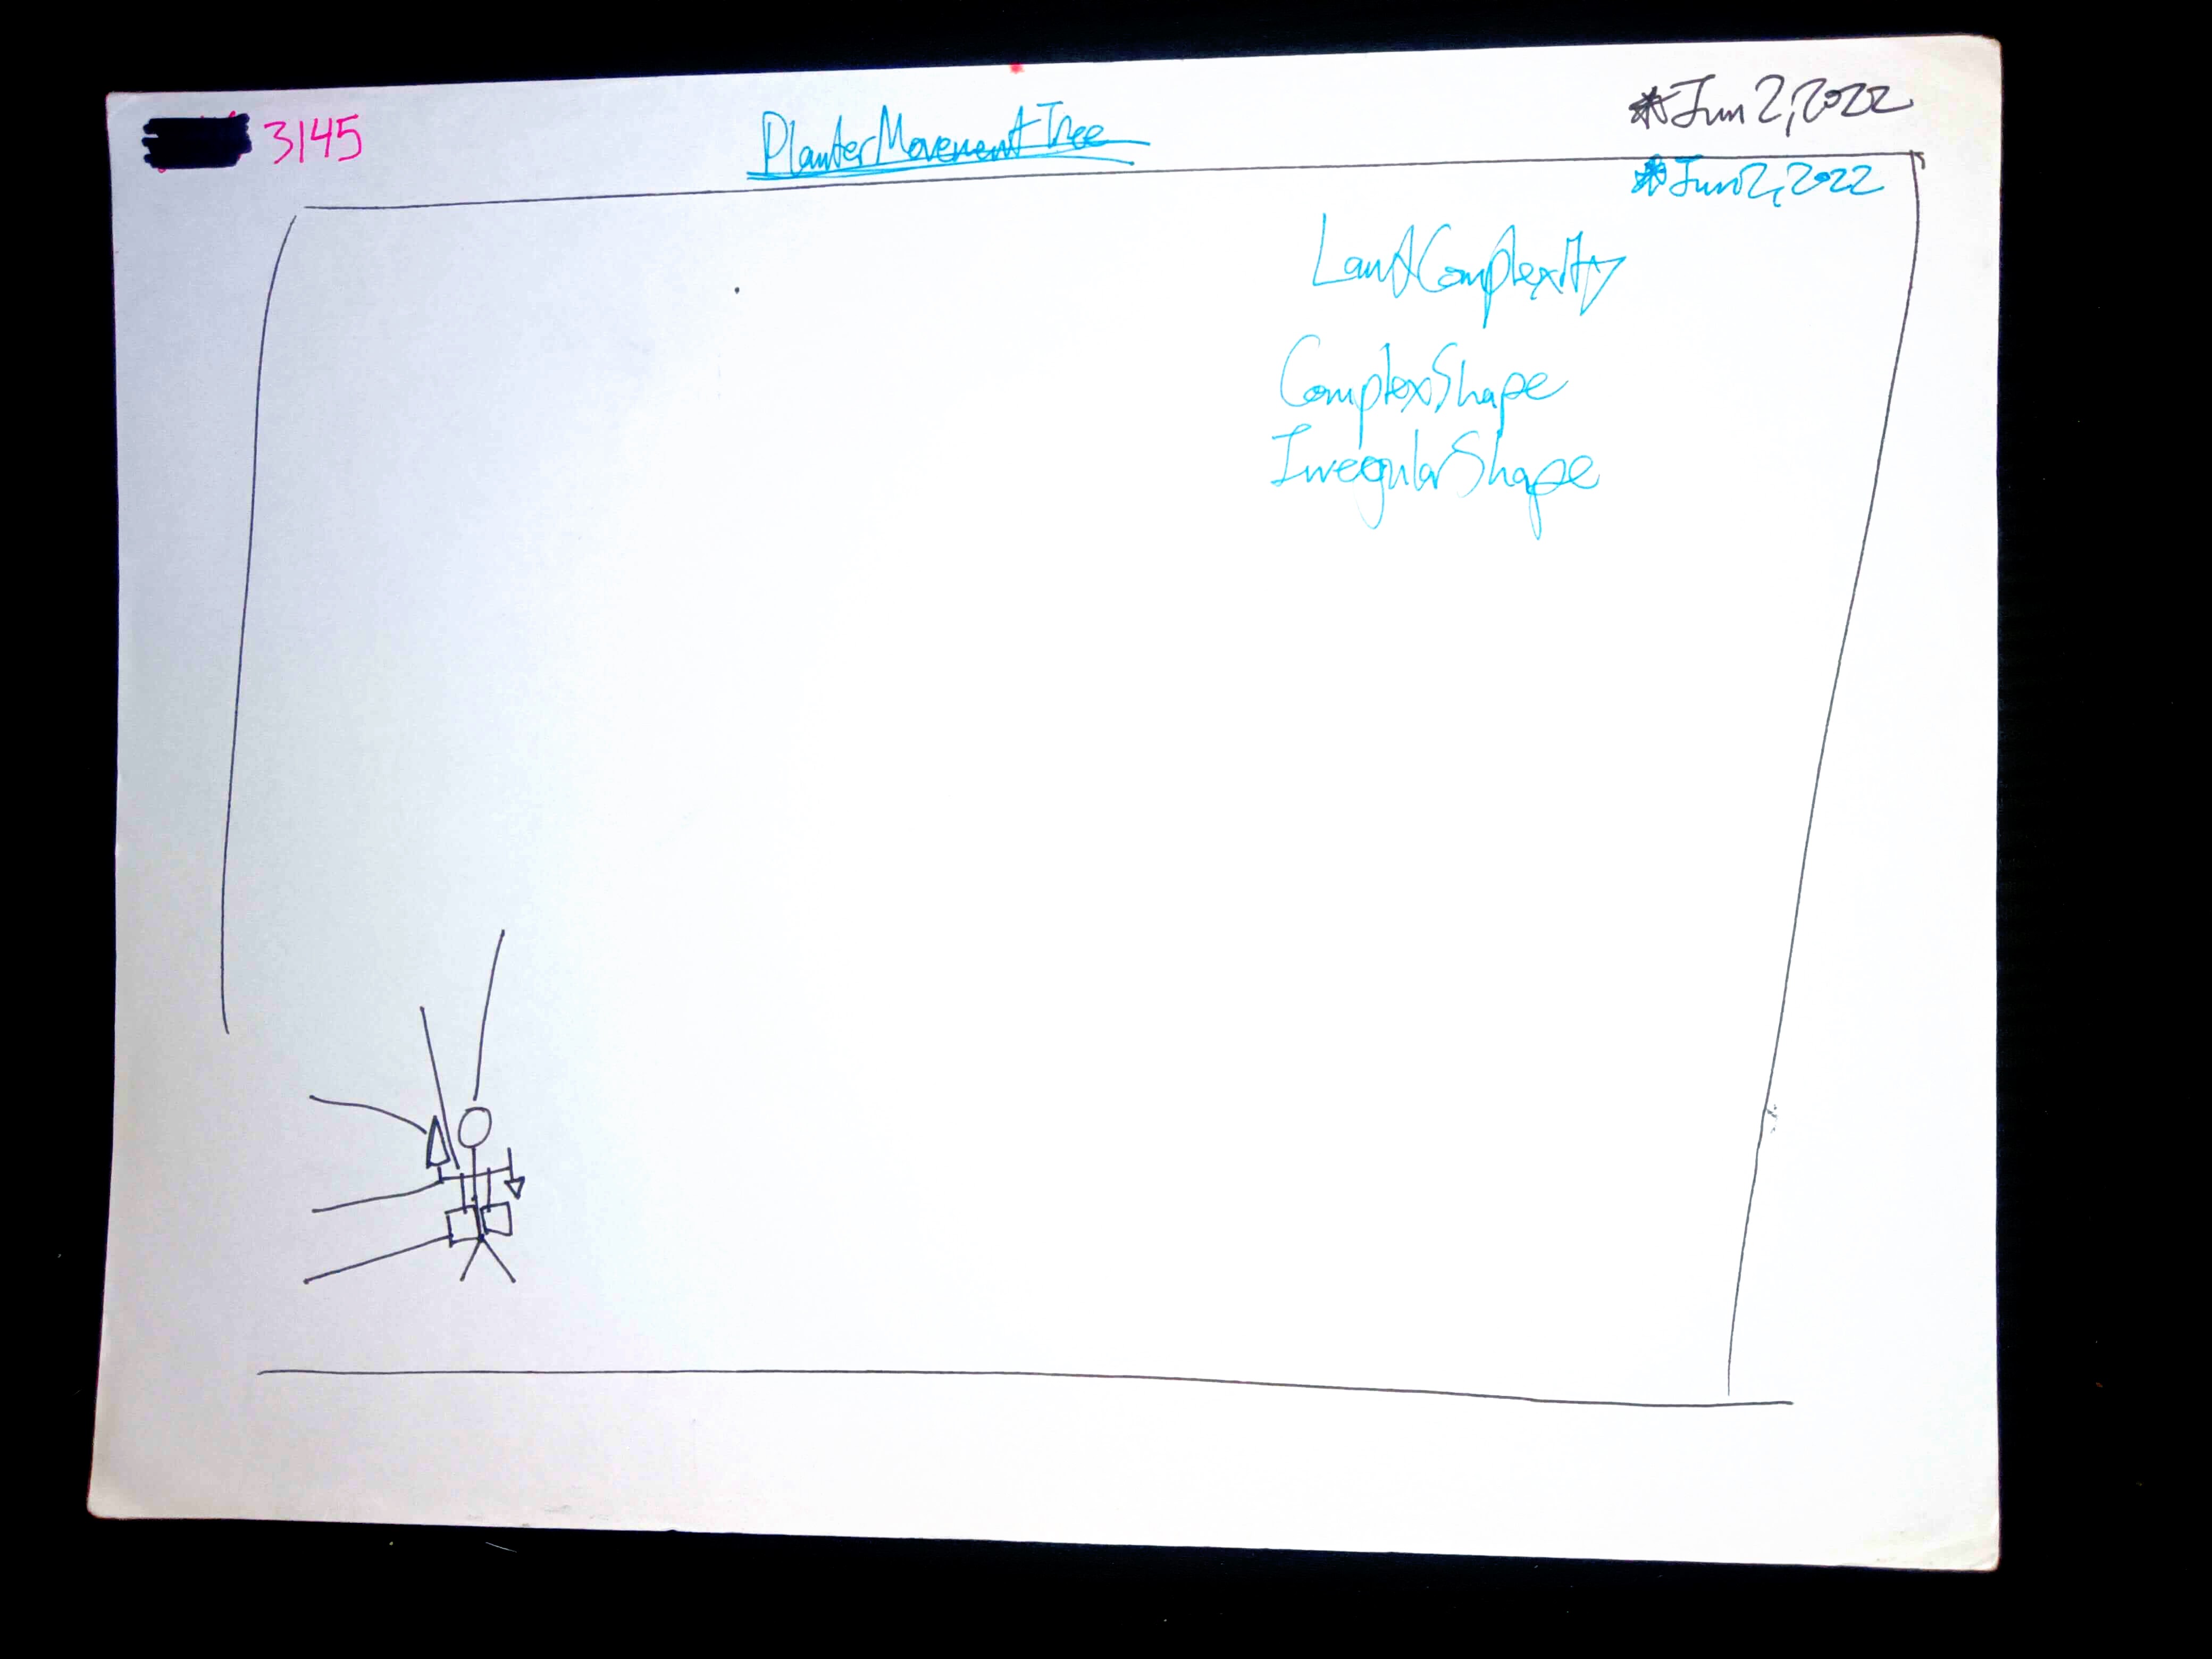 3145
PlanterMovementTree
*Jun 2, 2022
*Jun 2, 2022
LandComplexity
ComplexShape
IrregularShape